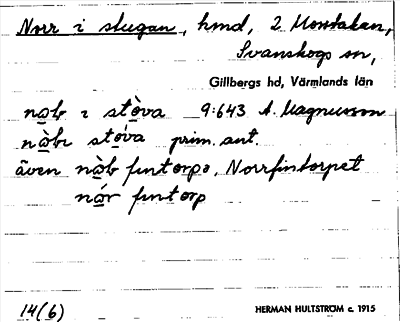 Norr i stugan, hmd, 2 Mondakan,
Svanskogs sn,
Gillbergs hd, Värmlands län
nob i stòva 9:643 A. Magnusson
nòbı stova prim. ant.
även nòb fıntorpə, Norrfintorpet
nór fıntorp
14(6)
HERMAN HULTSTRÖM c. 1915